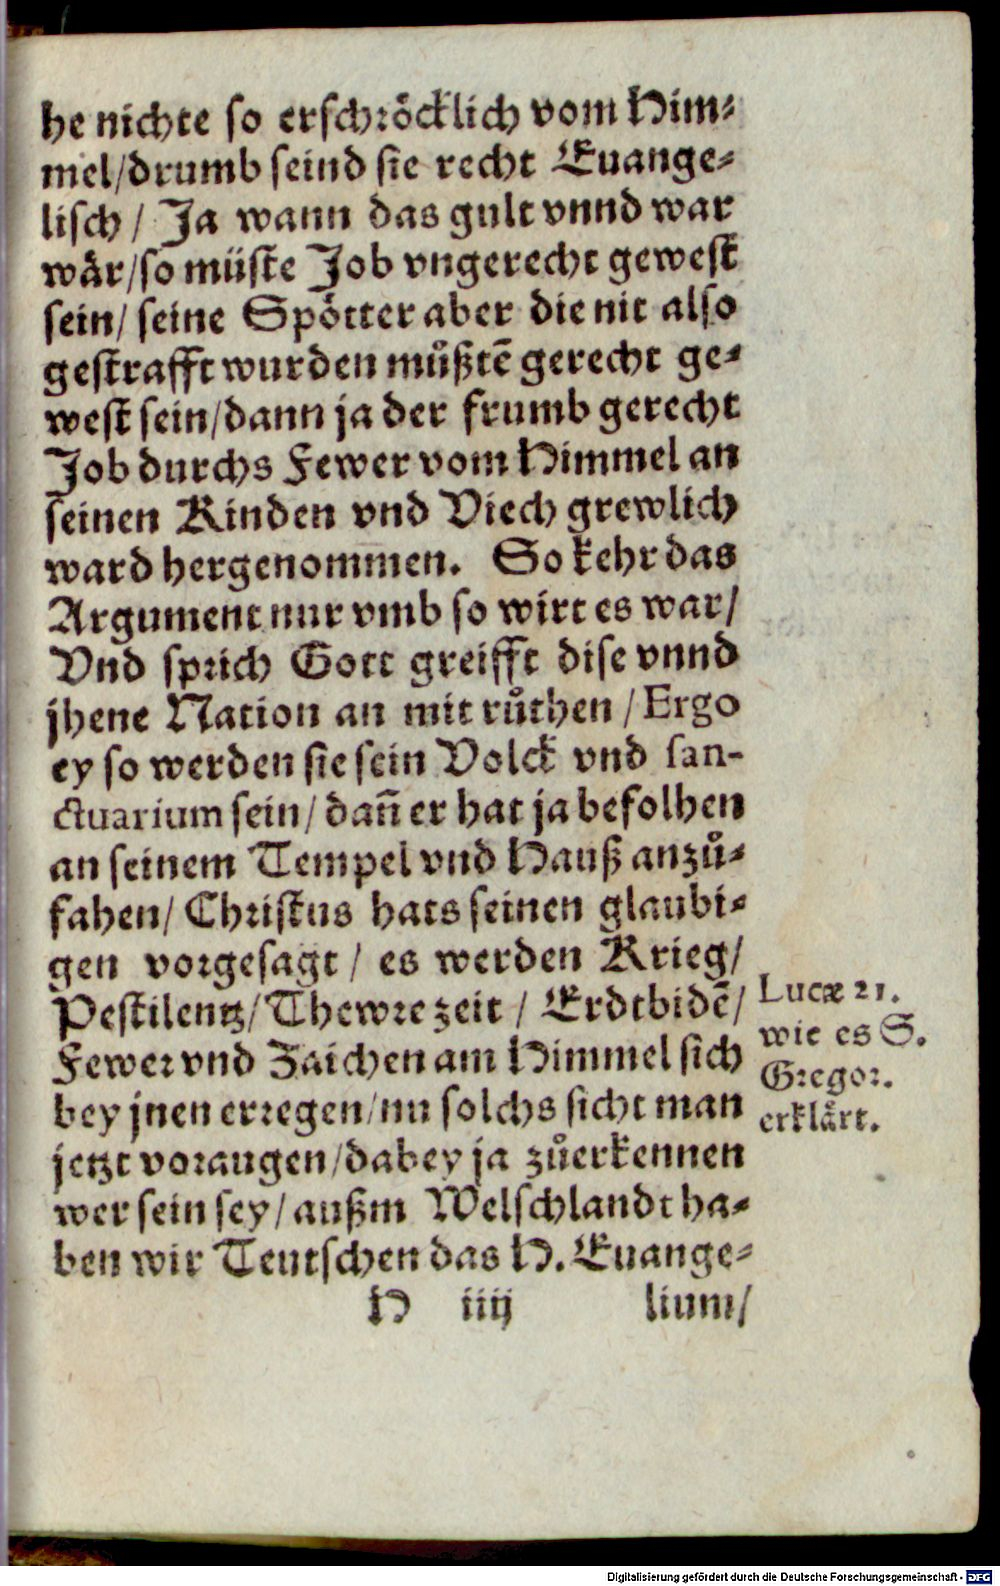 he nichte so erschröcklich vom Him-
mel/drumb seind sie recht Euange-
lisch/ Ja wann das gult vnnd war
wär/so müste Job vngerecht gewest
sein/ seine Spötter aber die nit also
gestrafft wurden müßtē gerecht ge-
west sein/dann ja der frumb gerecht
Job durchs Fewer vom Himmel an
seinen Kinden vnd Viech grewlich
ward hergenommen. So kehr das
Argument nur vmb so wirt es war/
Vnd sprich Gott greifft dise vnnd
jhene Nation an mit růthen / Ergo
ey so werden sie sein Volck vnd san-
ctuarium sein/ dañ er hat ja befolhen
an seinem Tempel vnd Hauß anzů-
fahen/ Christus hats seinen glaubi-
gen vorgesagt / es werden Krieg/
Pestilentz/ Thewre zeit / Erdtbidē/
Fewer vnd Zaichen am Himmel sich
bey jnen erregen/nu solchs sicht man
jetzt voraugen/dabey ja zůerkennen
wer sein sey/ außm Welschlandt ha-
ben wir Teutschen das H. Euange-
H iiij lium/
Lucæ 21.
wie es S.
Gregor.
erklärt.
Digitalisierung gefördert durch die Deutsche Forschungsgemeinschaft - DFG